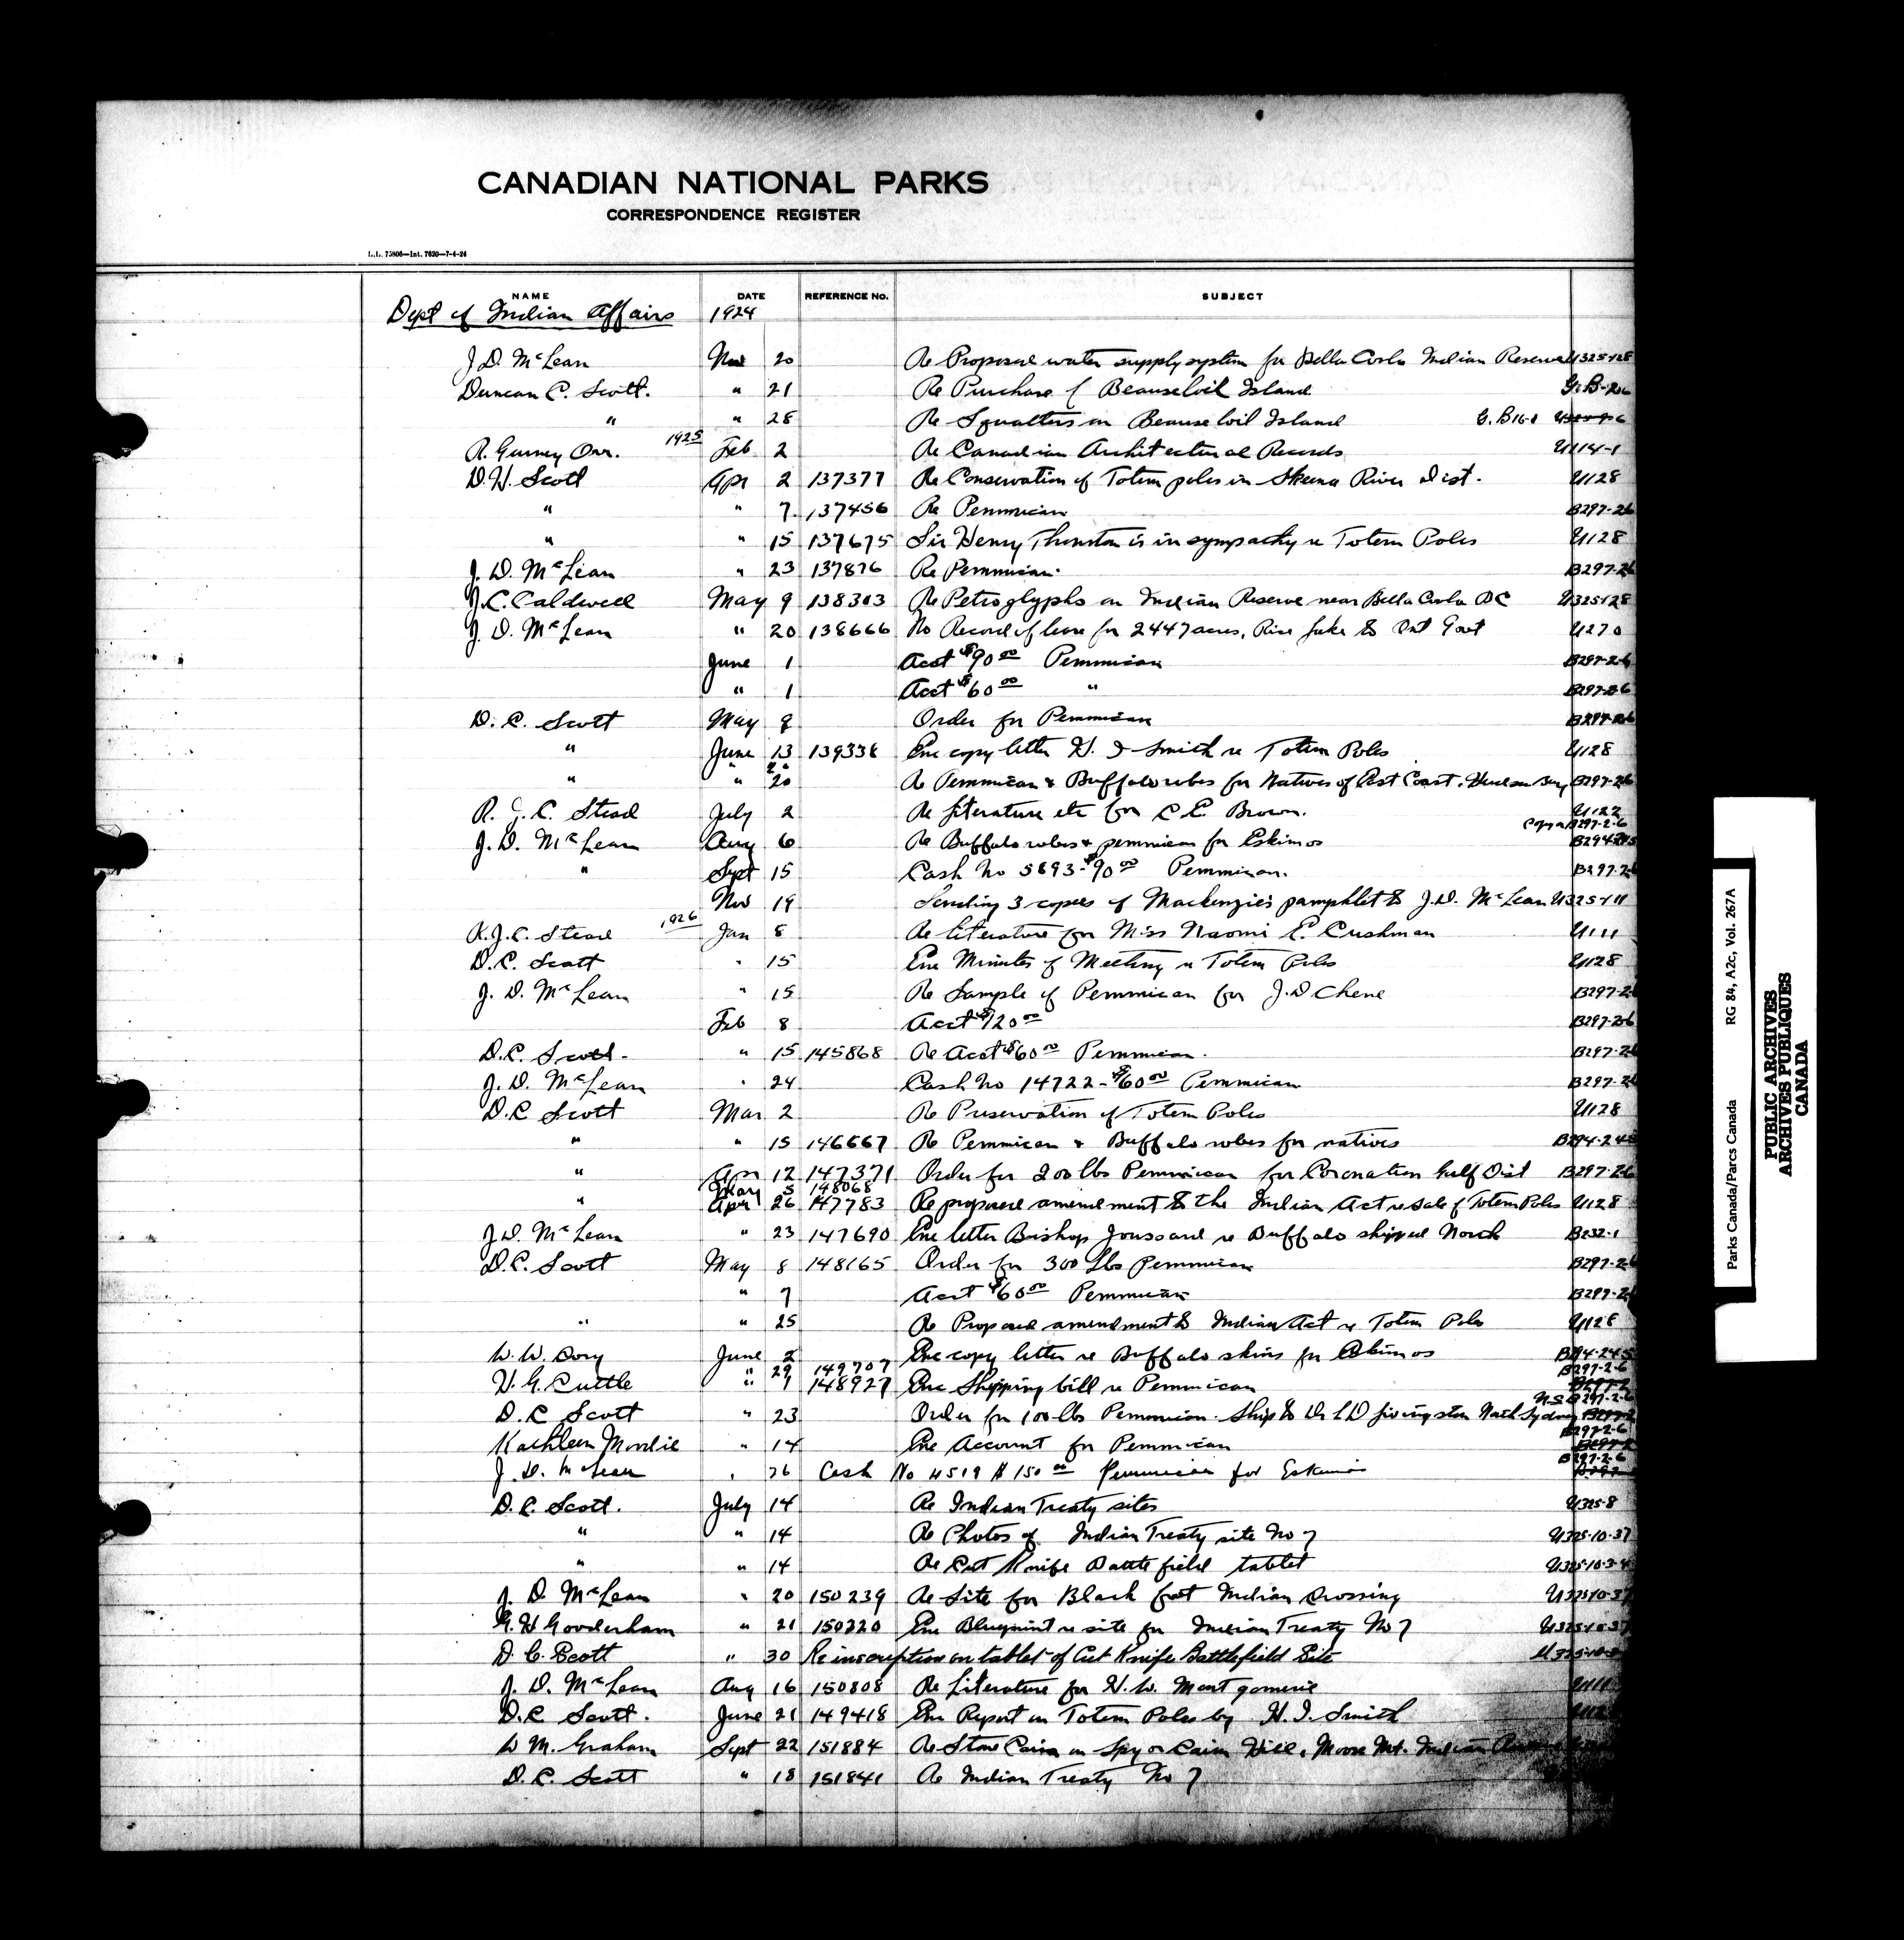 CANADIAN NATIONAL PARKS
CORRESPONDENCE REGISTER
L.L. 75806—Int. 7620—7-4-24
NAME DATE REFERENCE No. SUBJECT
Dept of Indian Affairs 1924
J.D. McLean Nov 20 Re Proposed water supply system for Bella Coola Indian Reserve U325-128
Duncan C. Scott. " 21 Re Purchase of Beausoleil Island G.B-26
" " 28 Re Squatters on Beausoleil Island G.B16-1
R. Gurney Orr. 1925 Feb 2 Re Canadian Architectural Records U114-1
D.H. Scott Apr 2 137377 Re Conservation of Totem poles in Skeena River Dist. U128
" " 7 137456 Re Pemmican B297-26
" " 15 137675 Sir Henry Thornton is in sympathy re Totem Poles U128
J. D. McLean " 23 137876 Re Pemmican. B297-26
J.C. Caldwell May 9 138303 Re Petroglyphs on Indian Reserve near Bella Coola BC U325-128
J. D. McLean " 20 138666 No Record of lease for 2447 acres, Rice Lake to Ont Govt U270
June 1 Acct $90 00 Pemmican B297-2-6
" 1 Acct $60 00 " B297-2-6
D. C. Scott May 8 Order for Pemmican B297-26
" June 13 139338 Enc copy letter H. I Smith re Totem Poles U128
" " 20 Re Pemmican & Buffalo robes for Natives of East Coast. Hudson Bay B297-26
R. J. C. Stead July 2 Re Literature etc for C. E. Brown. U122
Copy on B297-2-6
J. D. McLean Aug 6 Re Buffalo robes & pemmican for Eskimos B294-245
" Sept 15 Cash No 5893-$90 00 Pemmican. B297-26
Nov 19 Sending 3 copies of Mackenzie's pamphlet to J.D. McLean U325-1-11
R.J.C. Stead 1926 Jan 8 Re literature for Miss Naomi E. Cushman U111
D.C. Scott " 15 Enc Minutes of Meeting re Totem Poles U128
J. D. McLean " 15 Re Sample of Pemmican for J.D Chene B297-26
Feb 8 Acct $120 00 B297-2-6
D.C. Scott. " 15 145868 Re Acct $60 00 Pemmican. B297-26
J. D. McLean " 24 Cash No 14722-$60 00 Pemmican B297-26
D.C Scott Mar 2 Re Preservation of Totem Poles U128
" " 15 146667 Re Pemmican & Buffalo robes for natives B294-245
" Apr 12 147371 Order for 200 lbs Pemmican for Coronation Gulf Dist B297-26
May 5 148068
" Apr 26 147783 Re proposed amendment to the Indian Act re sale of Totem Poles U128
J.D. McLean " 23 147690 Enc letter Bishop Joussard re Buffalo shipped North B232-1
D.C. Scott May 8 148165 Order for 300 lbs Pemmican B297-26
" 7 Acct $60 00 Pemmican B297-26
" " 25 Re Proposed amendment to Indian Act re Totem Poles U128
W. W. Cory June 2 Enc copy letter re Buffalo skins for Eskimos B294-245
29 149707 B297-2-6
H.G. Cuttle " 1 148927 Enc Shipping bill re Pemmican
D. C Scott " 23 Order for 100 lbs Pemmican. Ship to Dr L D Livingston North Sydney N.S B297-2-6
Kathleen Moodie " 14 Enc Account for Pemmican B297-2-6
J. D. McLean " 26 Cash No 4519 $150 00 Pemmican for Eskimos B297-2-6
D. C. Scott. July 14 Re Indian Treaty sites U325-8
" " 14 Re Photos of Indian Treaty site No 7 U325-10-37
" " 14 Re Cut Knife Battlefield tablet U325-10-3-4
J. D. McLean " 20 150239 Re Site for Black foot Indian Crossing U325-10-37
G.H Gooderham " 21 150220 Enc Blueprint re site for Indian Treaty No 7 U325-10-37
D. C. Scott " 30 Re inscription on tablet of Cut Knife Battlefield Site
J. D. McLean Aug 16 150808 Re Literature for H. W. Montgomerie U111
D.C Scott. June 21 149418 Enc Report on Totem Poles by H. I. Smith U128
W M. Graham Sept 22 151884 Re Stone Cairn on Spy or Cairn Hill, Moose Mt. Indian Reserve
D. C. Scott " 18 151841 Re Indian Treaty No 7
Parks Canada/Parcs Canada RG 84, A2c, Vol. 267A
PUBLIC ARCHIVES
ARCHIVES PUBLIQUES
CANADA